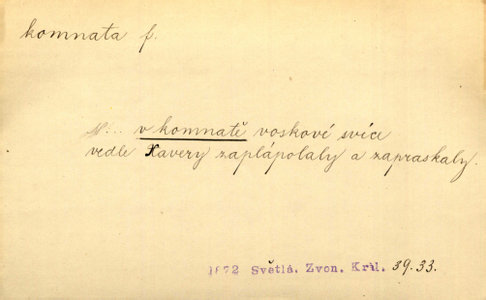 komnata f.
... v komnatě voskové svíce
vedle Xavery zaplápolaly a zapraskaly.
1872 Světlá. Zvon. Král. 39.33.